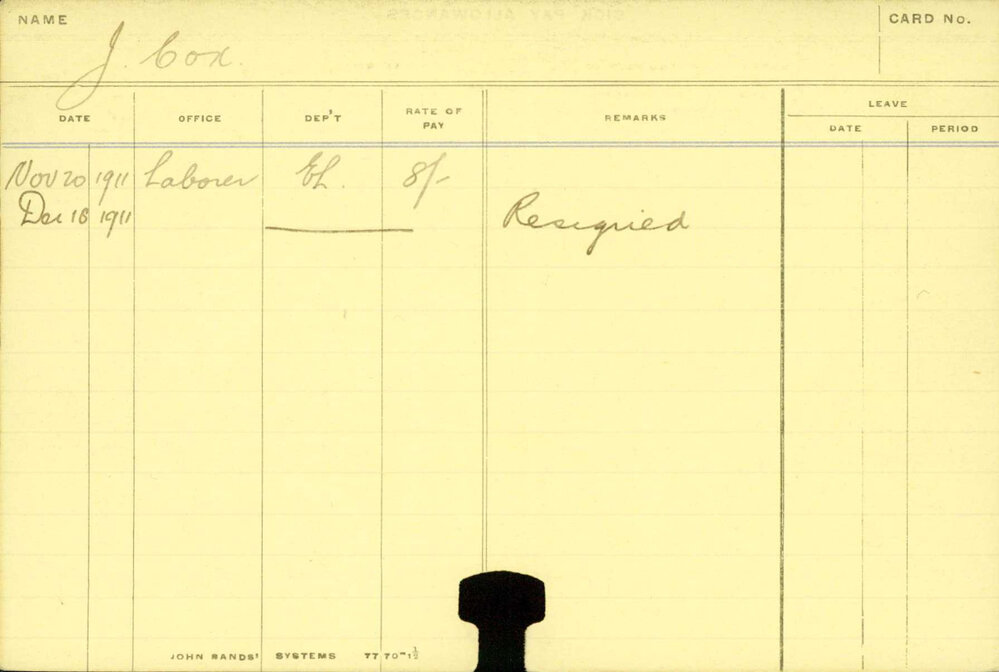 NAME J. Cox. CARD No.
DATE OFFICE DEP'T RATE OF PAY REMARKS LEAVE
DATE PERIOD
Nov 20 1911 Laborer EL. 8/-
Dec 16 1911 Resigned
JOHN SANDS' SYSTEMS 77 70-1½